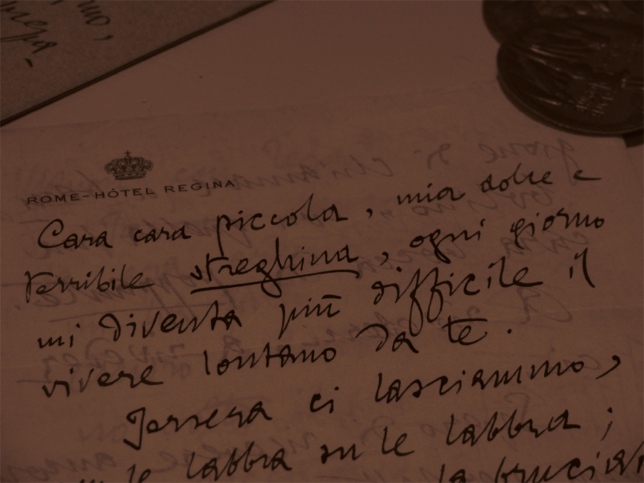 ROME-HÔTEL REGINA
Cara cara piccola, mia dolce e
terribile streghina, ogni giorno
mi diventa più difficile il
vivere lontano da te.
Jersera ci lasciammo,
le labbra su le labbra;